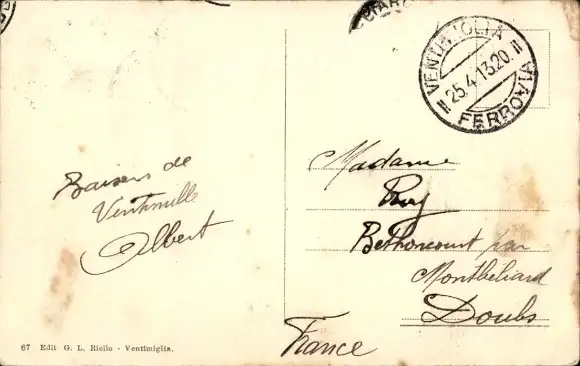 Baisers de
Ventimille
Albert
67 Edit G. L. Riello - Ventimiglia.
VENTIMIGLIA
25.4.13.20
FERROVIA
Madame
Bethoncourt par
Montbéliard
Doubs
France